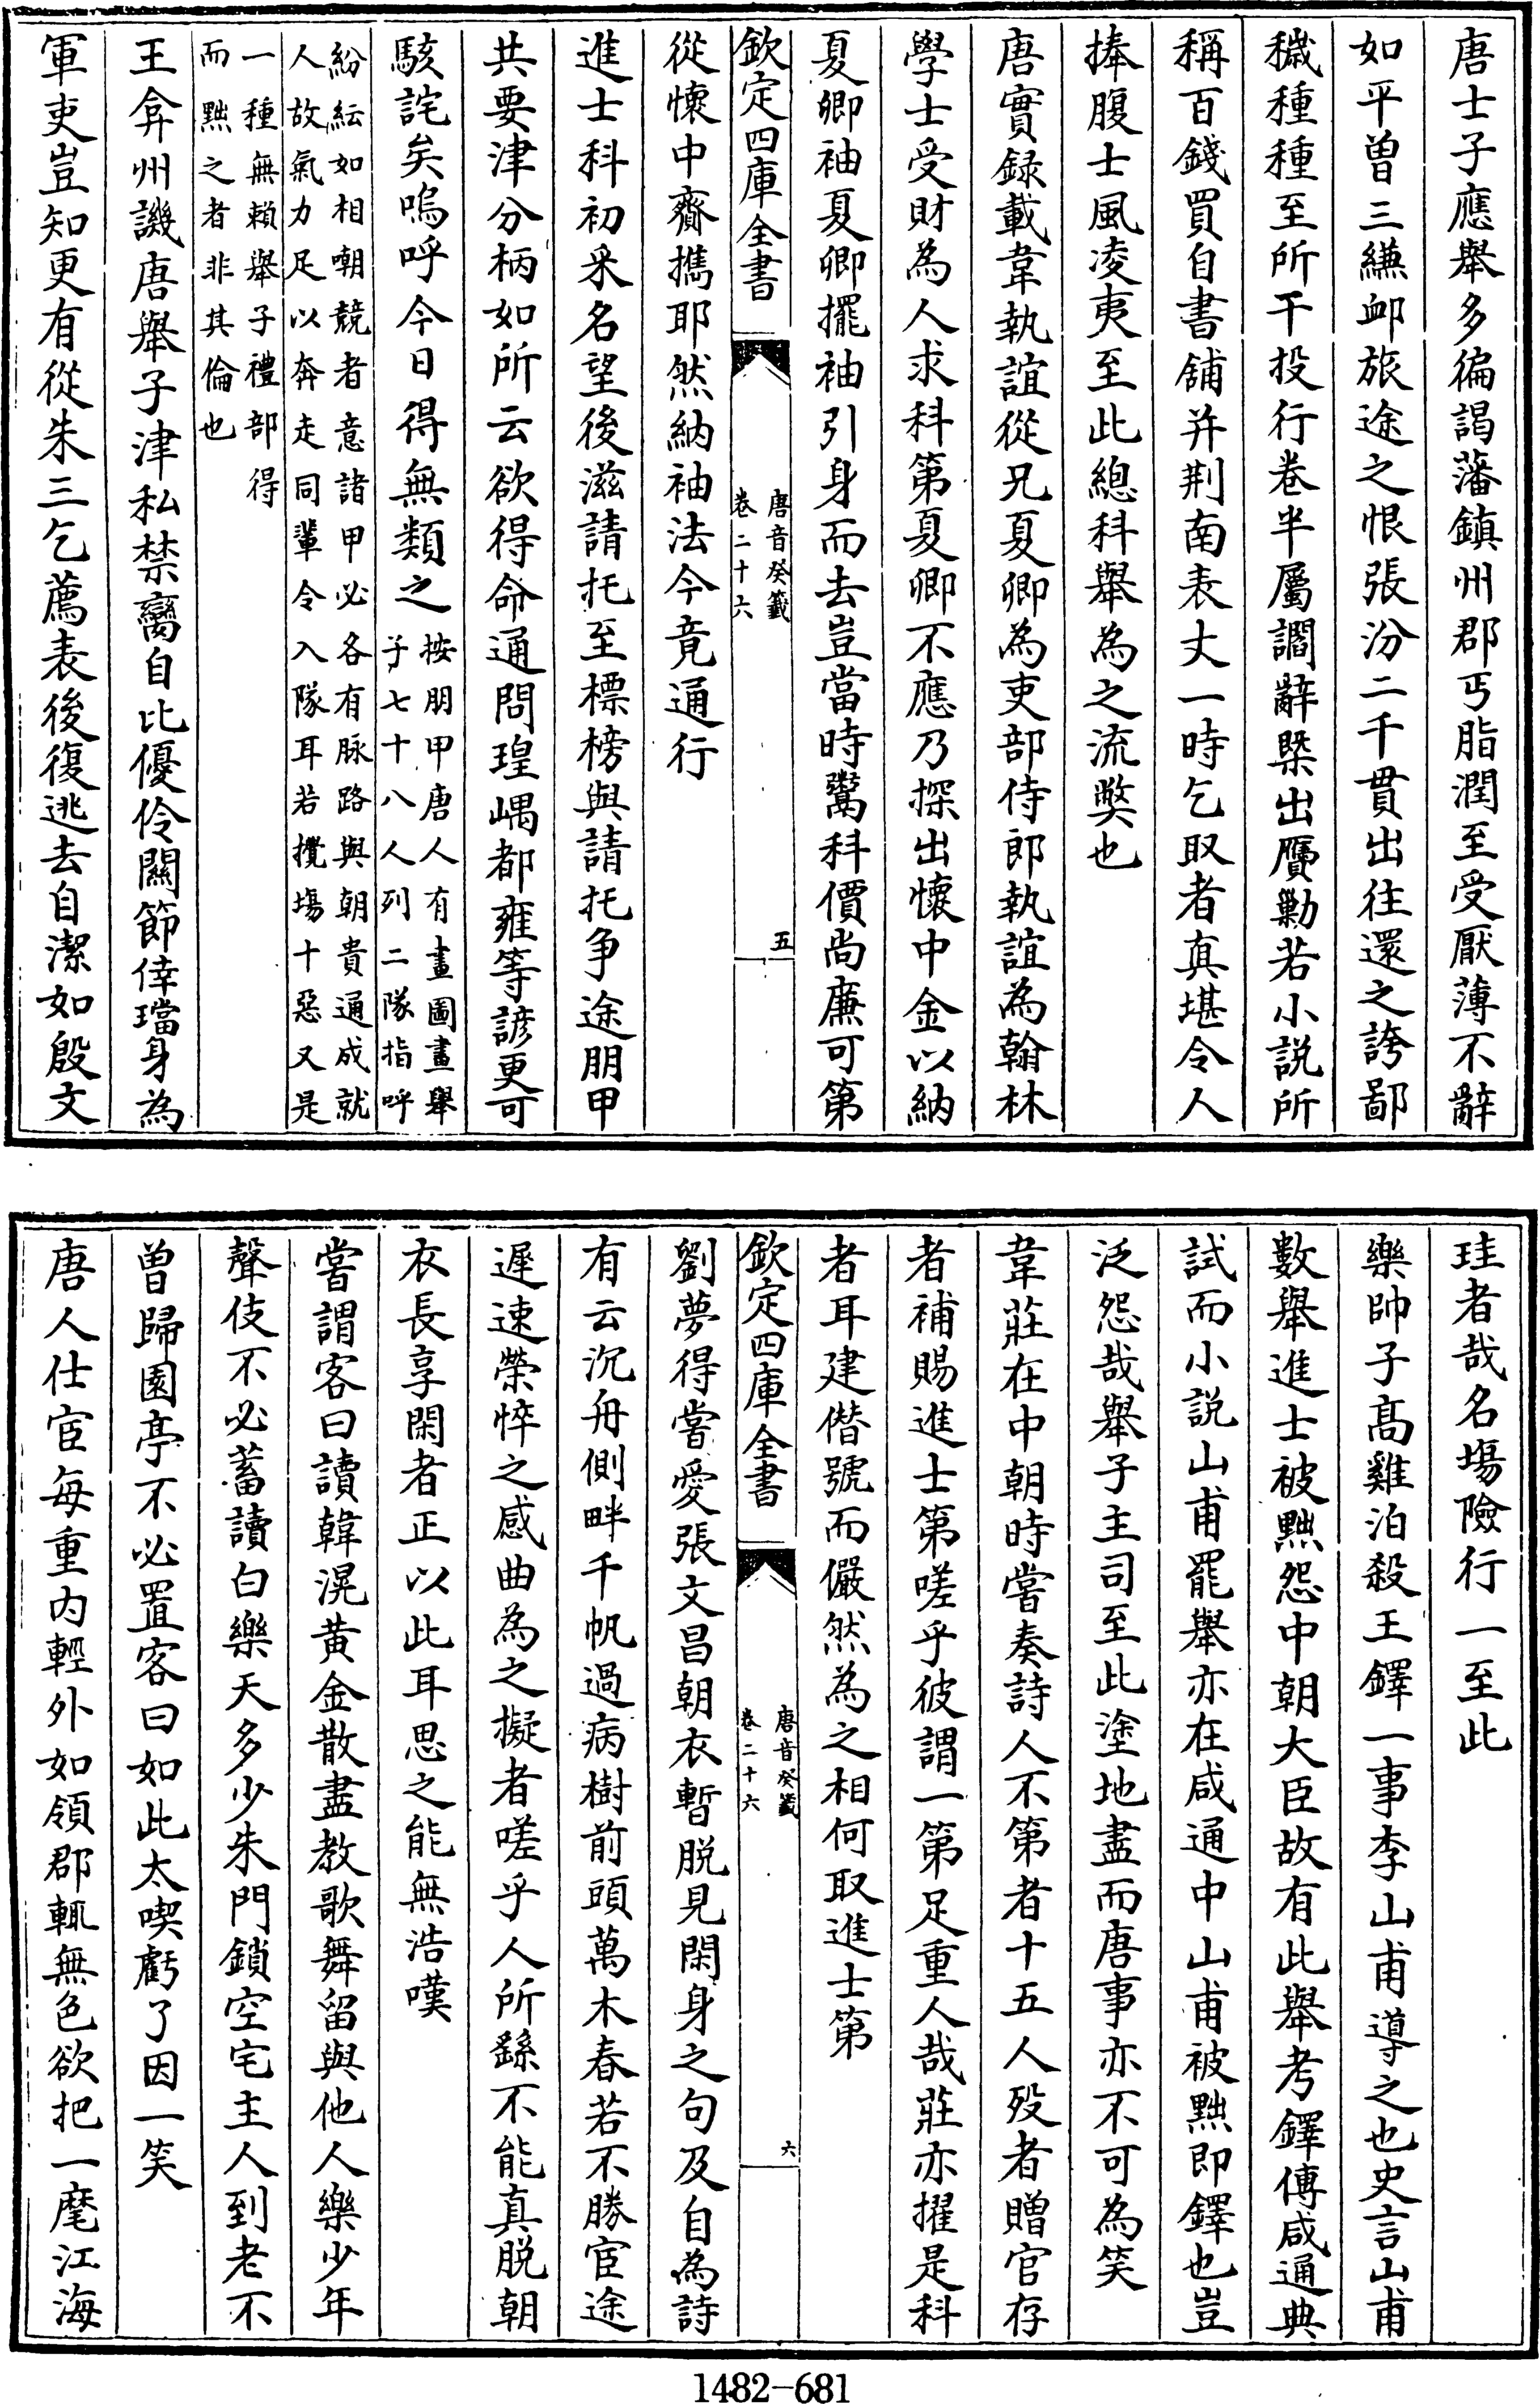 唐士子應舉多徧謁藩鎮州郡丐脂潤至受厭薄不辭
如平曾三縑卹旅途之恨張汾二千貫出往還之誇鄙
穢種種至所干投行卷半屬讇辭槩出贗勦若小說所
稱百錢買自書舖并荆南表丈一時乞取者真堪令人
捧腹士風凌夷至此總科舉為之流獘也
唐實録載韋執誼從兄夏卿為吏部侍郎執誼為翰林
學士受財為人求科第夏卿不應乃探出懷中金以納
夏卿袖夏卿擺袖引身而去豈當時鬻科價尚廉可第
欽定四庫全書
唐音癸籤
卷二十六
五
從懷中齎擕耶然納袖法今竟通行
進士科初采名望後滋請托至標榜與請托争途朋甲
共要津分柄如所云欲得命通問瑝嵎都雍等諺更可
駭詫矣嗚呼今日得無類之
按朋甲唐人有畫圖畫舉
子七十八人列二隊指呼
紛紜如相嘲競者意諸甲必各有脉路與朝貴通成就
人故氣力足以奔走同軰令入隊耳若攪塲十惡又是
一種無賴舉子禮部得
而黜之者非其倫也
王弇州譏唐舉子津私禁臠自比優伶關節倖璫身為
軍吏豈知更有從朱三乞薦表後復逃去自潔如殷文
珪者哉名塲險行一至此
樂帥子髙雞泊殺王鐸一事李山甫導之也史言山甫
數舉進士被黜怨中朝大臣故有此舉考鐸傳咸通典
試而小說山甫罷舉亦在咸通中山甫被黜即鐸也豈
泛怨哉舉子主司至此塗地盡而唐事亦不可為笑
韋莊在中朝時嘗奏詩人不第者十五人歿者贈官存
者補賜進士第嗟乎彼謂一第足重人哉莊亦擢是科
者耳建僭號而儼然為之相何取進士第
欽定四庫全書
唐音癸籤
卷二十六
六
劉夢得嘗愛張文昌朝衣暫脱見閑身之句及自為詩
有云沉舟側畔千帆過病樹前頭萬木春若不勝宦途
遲速榮悴之感曲為之擬者嗟乎人所繇不能真脱朝
衣長享閑者正以此耳思之能無浩嘆
嘗謂客曰讀韓滉黄金散盡教歌舞留與他人樂少年
聲伎不必蓄讀白樂天多少朱門鎖空宅主人到老不
曾歸園亭不必置客曰如此太喫虧了因一笑
唐人仕宦每重内輕外如領郡輒無色欲把一麾江海
1482-681